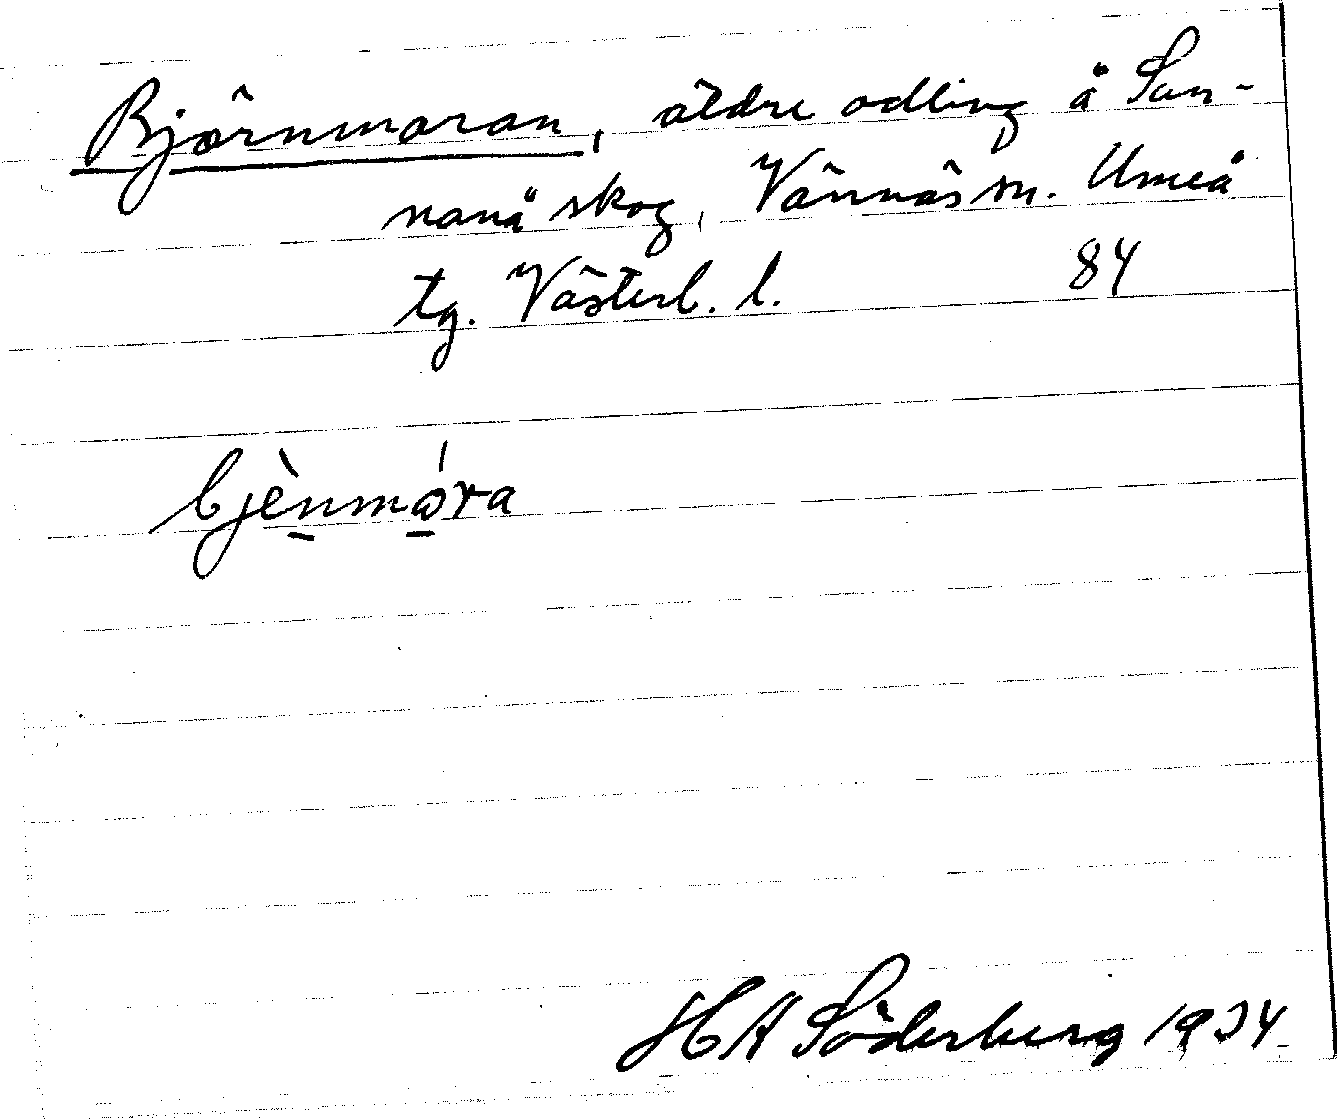 Björnmoran, äldre odling å San-
nanå skog, Vännäs sn. Umeå
tg. Västerb. l. 84
bjènmóra
HA Söderberg 1934